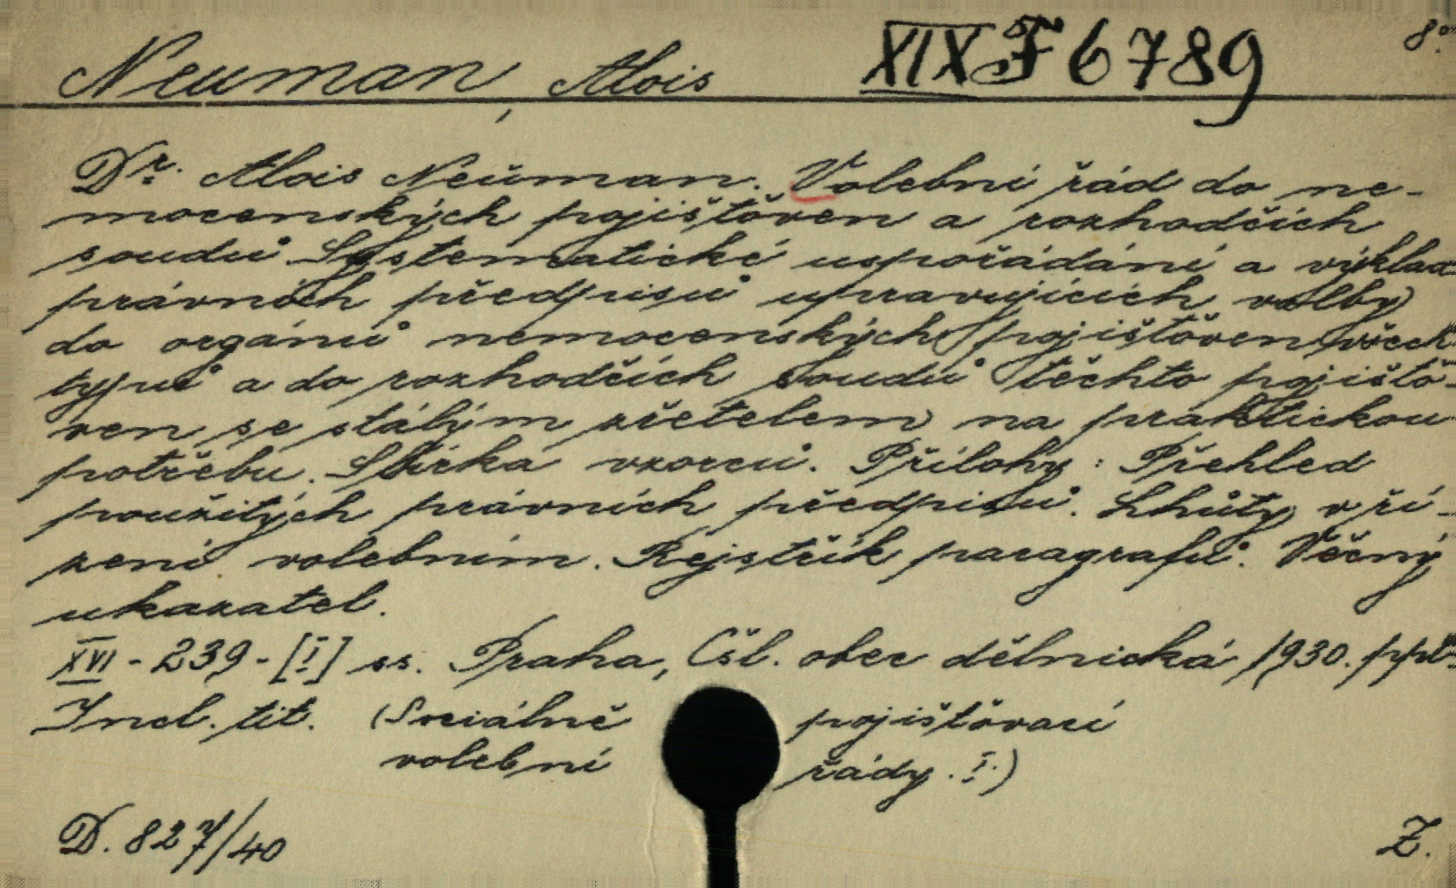 Neuman, Alois XIX F 6789 8°
Dr. Alois Neuman. Volební řád do ne-
mocenských pojišťoven a rozhodčích
soudů Systematické uspořádání a výklad
právních předpisů upravujících volby
do orgánů nemocenských pojišťoven všech
typů a do rozhodčích soudů těchto pojišťo-
ven se stálým zřetelem na praktickou
potřebu. Sbírka vzorců. Přílohy: Přehled
použitých právních předpisů. Lhůty v ří-
zení volebním. Rejstřík paragrafů. Věcný
ukazatel.
XVI - 239 - [I] ss. Praha, Čsl. obec dělnická 1930.
Incl. tit. (Sociálně pojišťovací
volební řády. I.)
D. 827/40 Z.